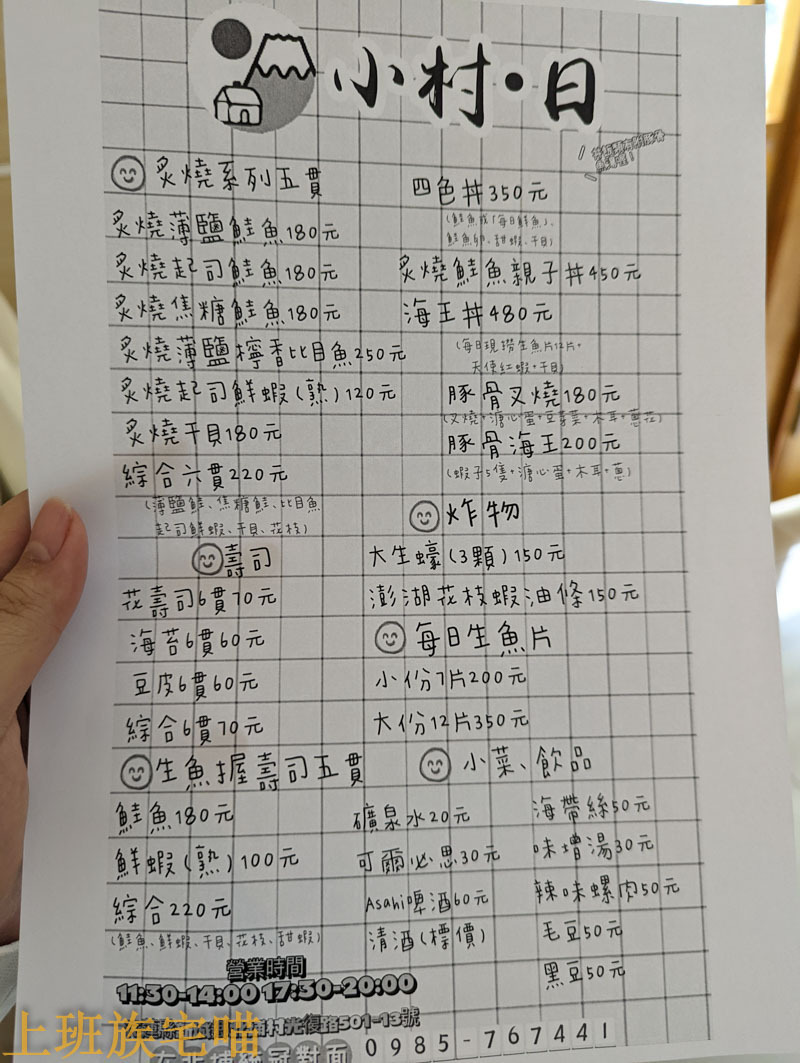 小村•日
炙燒系列五貫
炙燒薄鹽鮭魚180元
炙燒起司鮭魚180元
炙燒焦糖鮭魚180元
炙燒薄鹽檸香比目魚250元
炙燒起司鮮蝦(熟)120元
炙燒干貝180元
綜合六貫220元
(薄鹽鮭、焦糖鮭、比目魚
起司鮮蝦、干貝、花枝)
壽司
花壽司6貫70元
海苔6貫60元
豆皮6貫60元
綜合6貫70元
生魚握壽司五貫
鮭魚180元
鮮蝦(熟)100元
綜合220元
(鮭魚、鮮蝦、干貝、花枝、甜蝦)
四色丼350元
(鮭魚或「每日鮮魚」、
鮭魚卵、甜蝦、干貝)
炙燒鮭魚親子丼450元
海王丼480元
(每日現撈生魚片12片+
天使紅蝦+干貝)
豚骨叉燒180元
(叉燒+溏心蛋+豆芽菜+木耳+蔥花)
豚骨海王200元
(蝦子5隻+溏心蛋+木耳+蔥)
炸物
大生蠔(3顆)150元
澎湖花枝蝦油條150元
每日生魚片
小份7片200元
大份12片350元
小菜、飲品
礦泉水20元
可爾必思30元
Asahi啤酒60元
清酒(標價)
海帶絲50元
味增湯30元
辣味螺肉50元
毛豆50元
黑豆50元
營業時間
11:30-14:00 17:30-20:00
光復路501-13號
對面
0985-767441
上班族宅喵